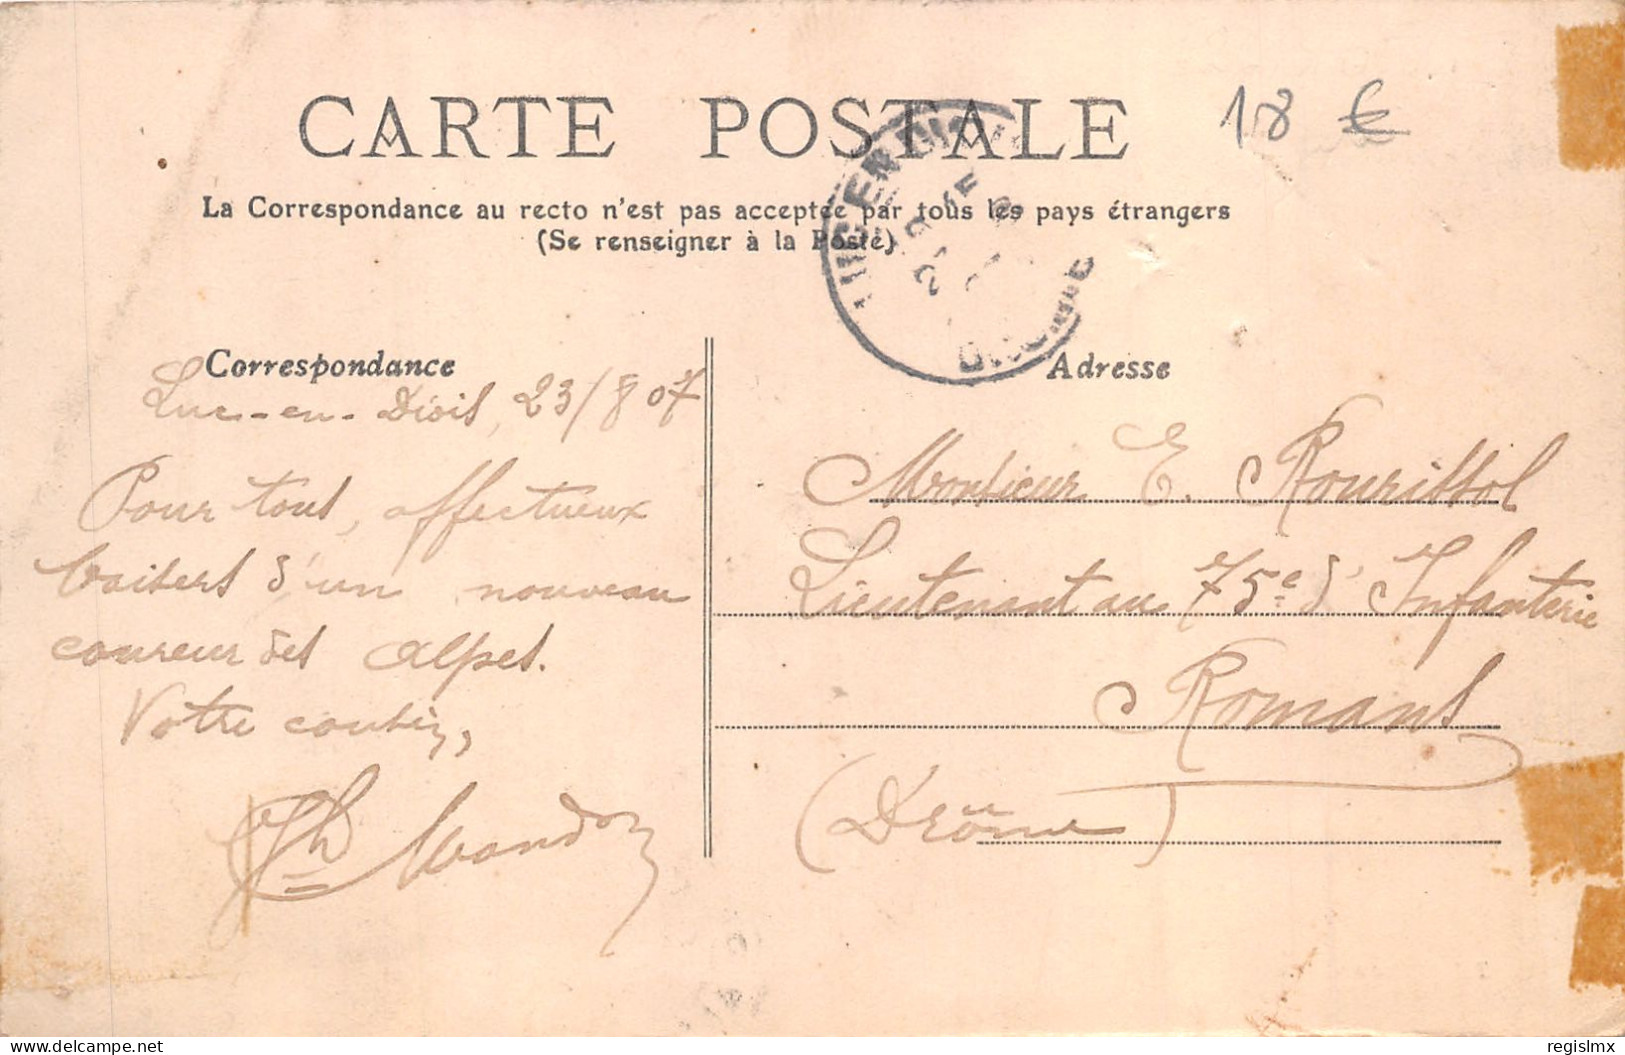 CARTE POSTALE
18 €
La Correspondance au recto n'est pas acceptée par tous les pays étrangers
(Se renseigner à la Poste)
LUC EN DIOIS
DROME
Correspondance
Luc-en-Diois, 23/8 07
Pour tous, affectueux
baisers d'un nouveau
coureur des Alpes.
Votre cousin,
Adresse
Monsieur E. Rourissol
Lieutenant au 75e d'Infanterie
Romans
(Drôme)
delcampe.net
regislmx